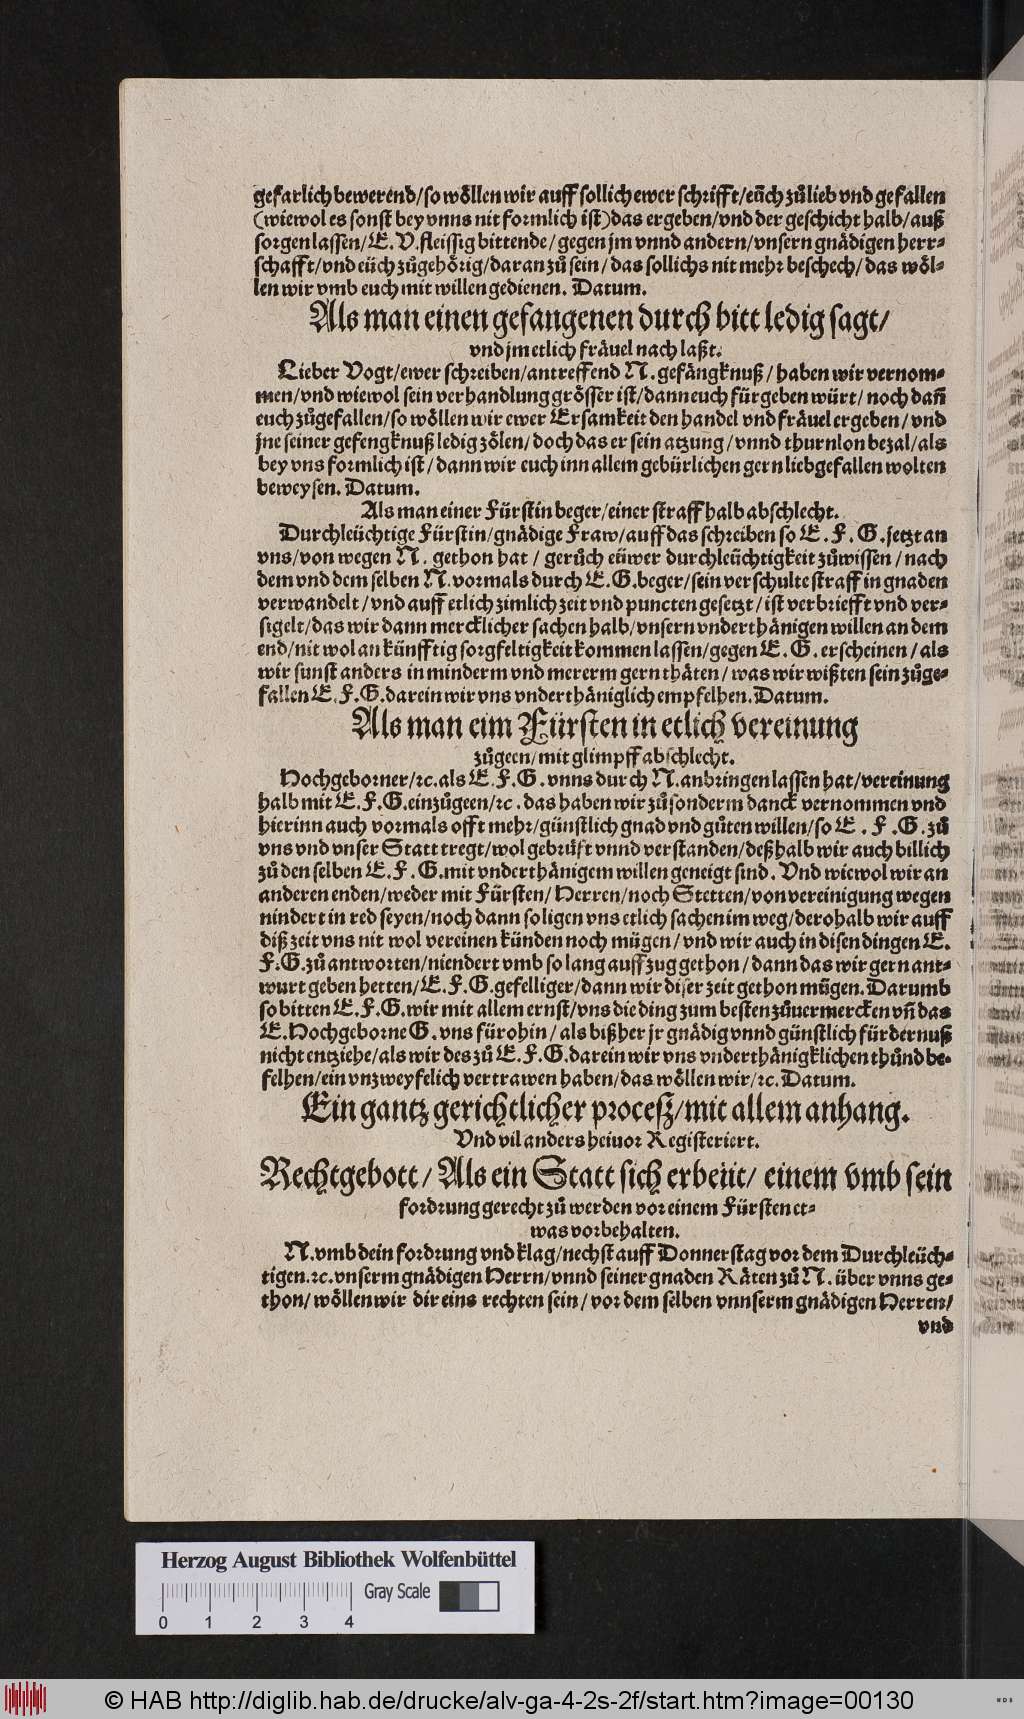 gefarlich bewerend/so wöllen wir auff sollich ewer schrifft/eüch zůlieb vnd gefallen
(wiewol es sonst bey vnns nit formlich ist) das ergeben/vnd der geschicht halb/auß
sorgen lassen/E. V. fleissig bittende/gegen jm vnnd andern/vnsern gnädigen herr-
schafft/vnd eüch zůgehörig/daran zů sein/das sollichs nit mehr beschech/das wöl-
len wir vmb euch mit willen gedienen. Datum.
Als man einen gefangenen durch bitt ledig sagt/
vnd jm etlich fräuel nach laßt.
Lieber Vogt/ewer schreiben/antreffend N. gefängknuß/haben wir vernom-
men/vnd wiewol sein verhandlung grösser ist/dann euch fürgeben würt/noch dañ
euch zůgefallen/so wöllen wir ewer Ersamkeit den handel vnd fräuel ergeben/vnd
jne seiner gefengknuß ledig zölen/doch das er sein atzung/vnnd thurnlon bezal/als
bey vns formlich ist/dann wir euch inn allem gebürlichen gern liebgefallen wolten
beweysen. Datum.
Als man einer Fürstin beger/einer straff halb abschlecht.
Durchleüchtige Fürstin/gnädige Fraw/auff das schreiben so E. F. G. jetzt an
vns/von wegen N. gethon hat/gerůch eüwer durchleüchtigkeit zůwissen/nach
dem vnd dem selben N. vormals durch E. G. beger/sein verschulte straff in gnaden
verwandelt/vnd auff etlich zimlich zeit vnd puncten gesetzt/ist verbriefft vnd ver-
sigelt/das wir dann mercklicher sachen halb/vnsern vnderthänigen willen an dem
end/nit wol an künfftig sorgfeltigkeit kommen lassen/gegen E. G. erscheinen/als
wir sunst anders in minderm vnd mererm gern thäten/was wir wißten sein zůge-
fallen E. F. G. darein wir vns vnderthäniglich empfelhen. Datum.
Als man eim Fürsten in etlich vereinung
zůgeen/mit glimpff abschlecht.
Hochgeborner/ꝛc. als E. F. G. vnns durch N. anbringen lassen hat/vereinung
halb mit E. F. G. einzůgeen/ꝛc. das haben wir zů sonderm danck vernommen vnd
hierinn auch vormals offt mehr/günstlich gnad vnd gůten willen/so E. F. G. zů
vns vnd vnser Statt tregt/wol gebrüft vnnd verstanden/deßhalb wir auch billich
zů den selben E. F. G. mit vnderthänigem willen geneigt sind. Vnd wiewol wir an
anderen enden/weder mit Fürsten/Herren/noch Stetten/von vereinigung wegen
nindert in red seyen/noch dann so ligen vns etlich sachen im weg/derohalb wir auff
diß zeit vns nit wol vereinen künden noch mügen/vnd wir auch in disen dingen E.
F. G. zů antworten/niendert vmb so lang auffzug gethon/dann das wir gern ant-
wurt geben hetten/E. F. G. gefelliger/dann wir diser zeit gethon mügen. Darumb
so bitten E. F. G. wir mit allem ernst/vns die ding zum besten zůuermercken vñ das
E. Hochgeborne G. vns fürohin/als bißher jr gnädig vnnd günstlich fürdernuß
nicht entziehe/als wir des zů E. F. G. darein wir vns vnderthänigklichen thůnd be-
felhen/ein vnzweyfelich vertrawen haben/das wöllen wir/ꝛc. Datum.
Ein gantz gerichtlicher proceß/mit allem anhang.
Vnd vil anders heiuor Registeriert.
Rechtgebott/Als ein Statt sich erbeüt/einem vmb sein
fordrung gerecht zů werden vor einem Fürsten et-
was vorbehalten.
N. vmb dein fordrung vnd klag/nechst auff Donnerstag vor dem Durchleüch-
tigen. ꝛc. vnserm gnädigen Herrn/vnnd seiner gnaden Räten zů N. über vnns ge-
thon/wöllen wir dir eins rechten sein/vor dem selben vnnserm gnädigen Herren/
vnd
Herzog August Bibliothek Wolfenbüttel
Gray Scale
0 1 2 3 4
© HAB http://diglib.hab.de/drucke/alv-ga-4-2s-2f/start.htm?image=00130